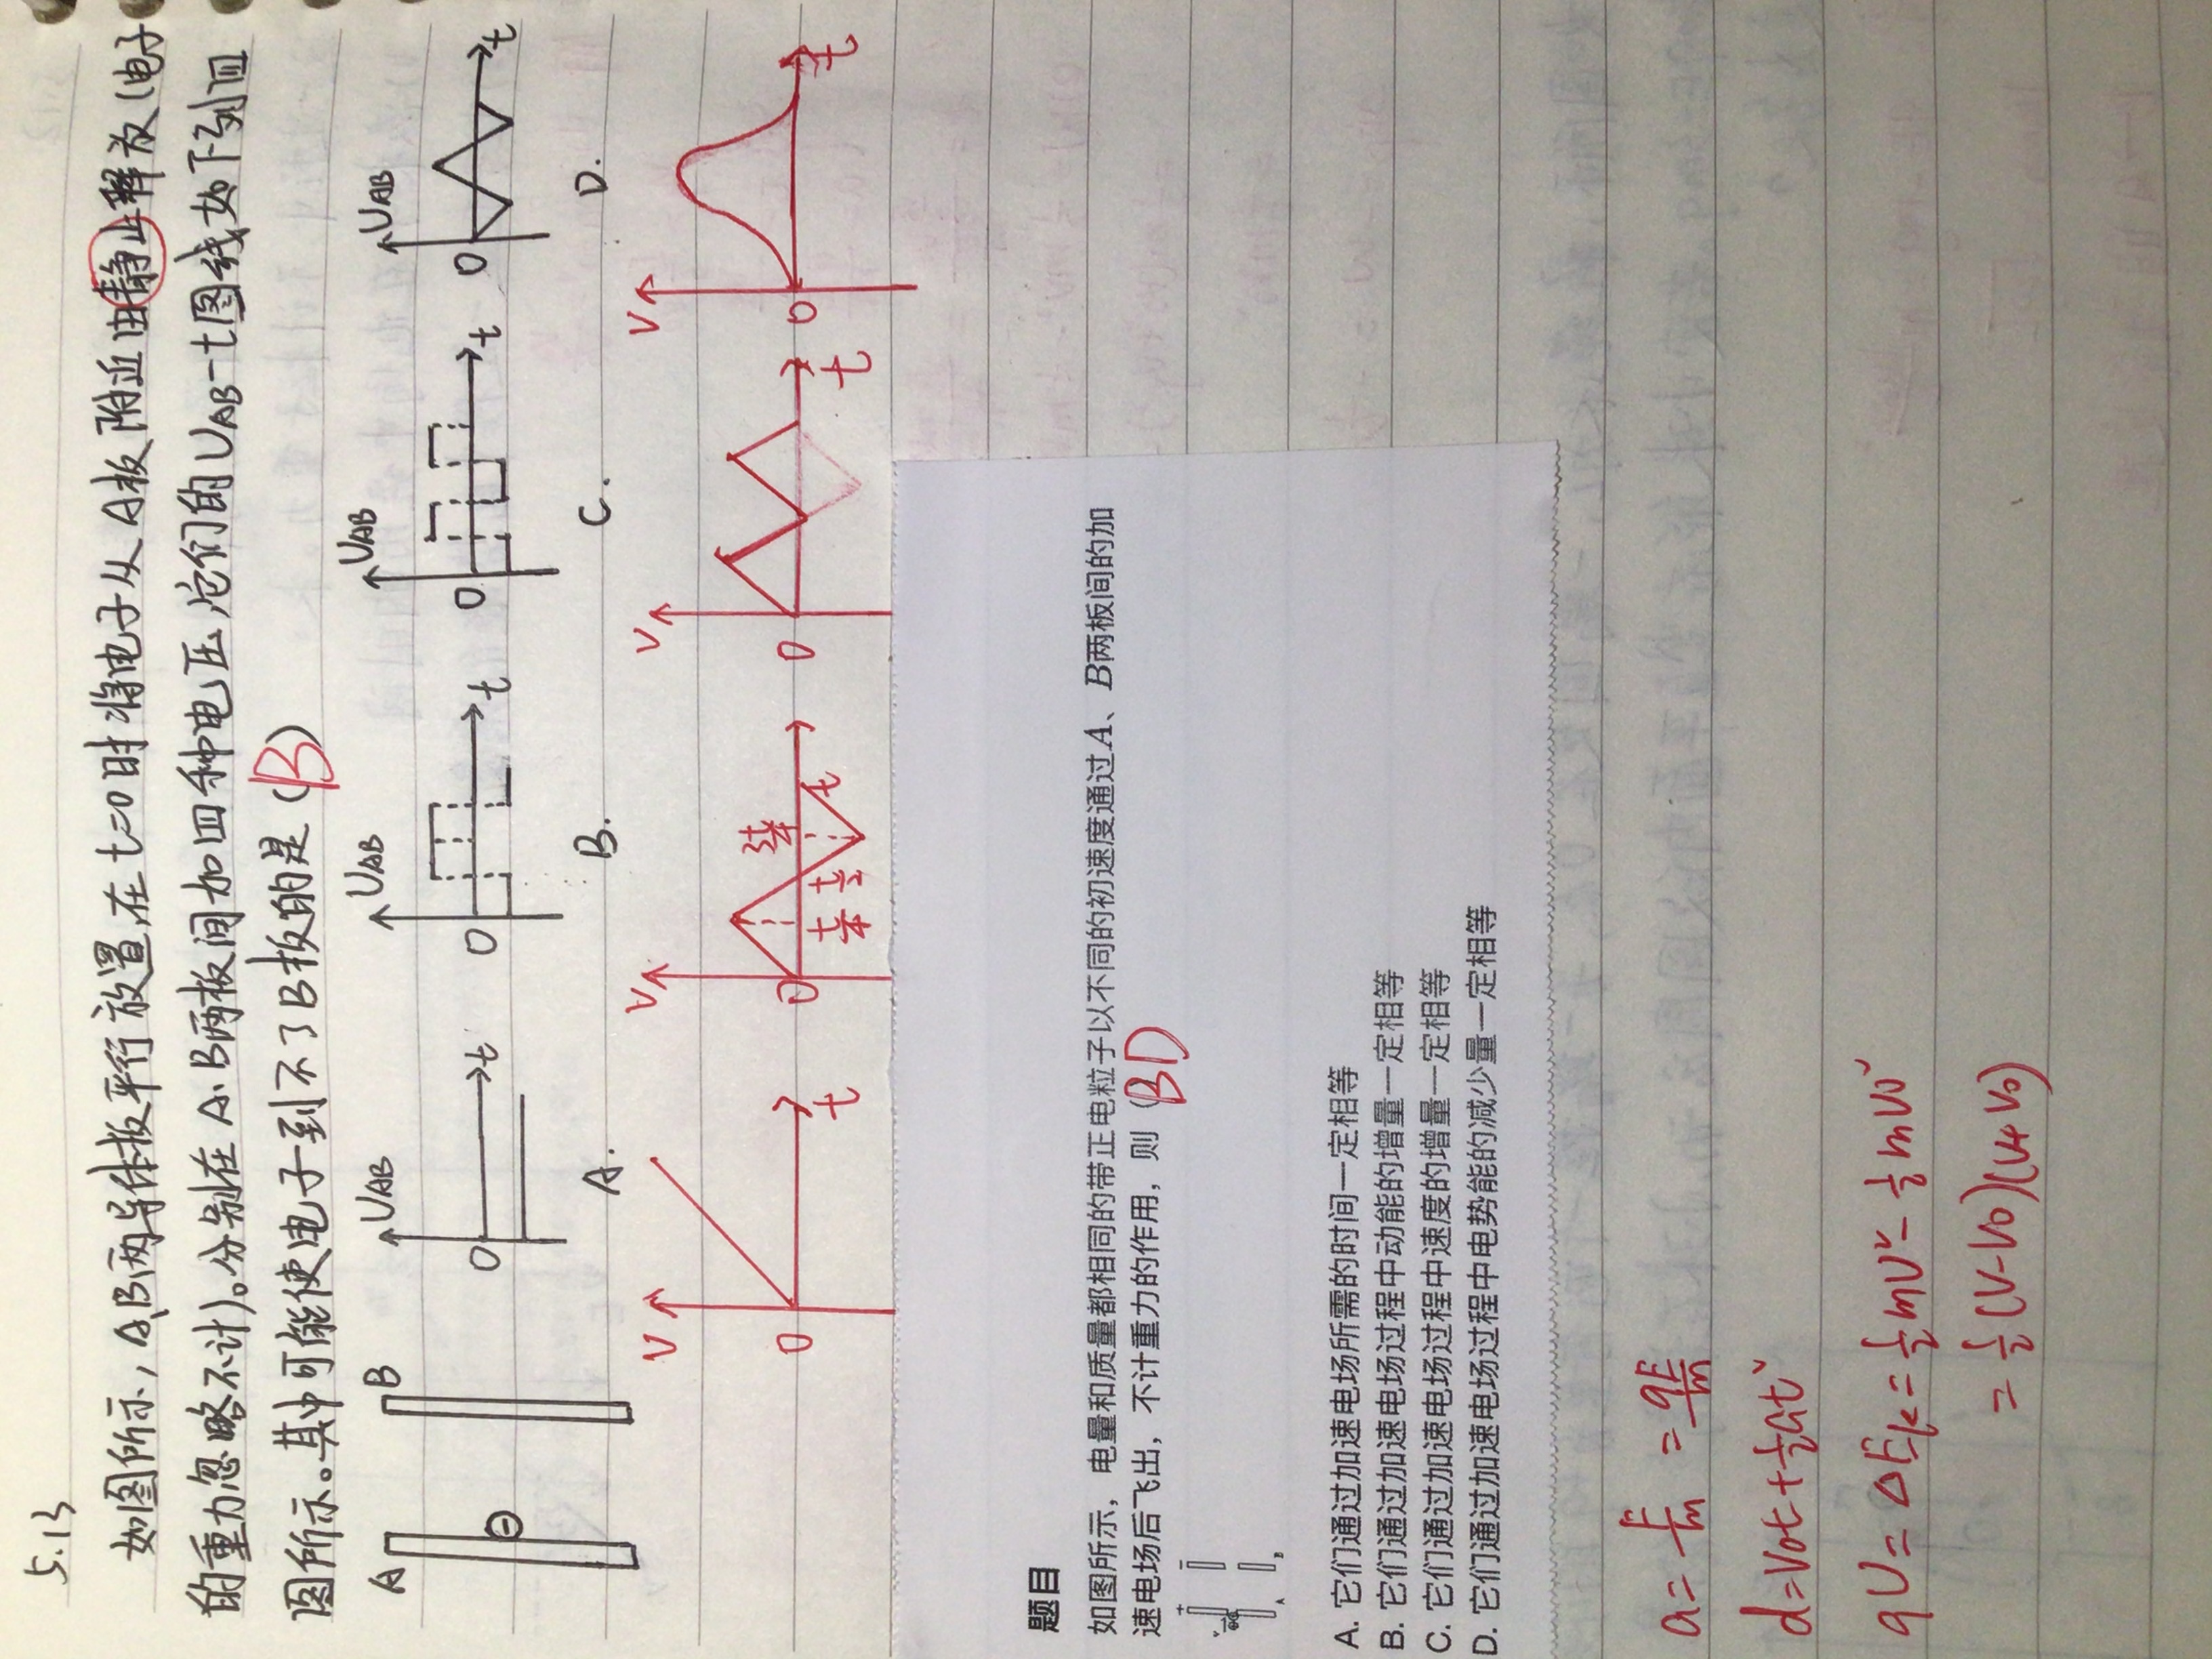 5.13
如图所示，A、B两导体板平行放置，在t=0时将电子从A板附近由静止释放（电子
的重力忽略不计）。分别在A、B两板间加四种电压，它们的UAB-t图线如下列四
图所示。其中可能使电子到不了B板的是（B）
A B UAB UAB UAB UAB
0 t 0 t 0 t 0 t
A. B. C. D.
V V V V
0 t 0 t/4 t/2 3t/4 t 0 t 0 t
题目
如图所示，电量和质量都相同的带正电粒子以不同的初速度通过A、B两板间的加
速电场后飞出，不计重力的作用，则（BD
+ −
v
A B
A. 它们通过加速电场所需的时间一定相等
B. 它们通过加速电场过程中动能的增量一定相等
C. 它们通过加速电场过程中速度的增量一定相等
D. 它们通过加速电场过程中电势能的减少量一定相等
a=F/m =qE/m
d=V0t+½at²
qU=ΔEk=½mv²-½mV0²
=½(V-V0)(V+V0)